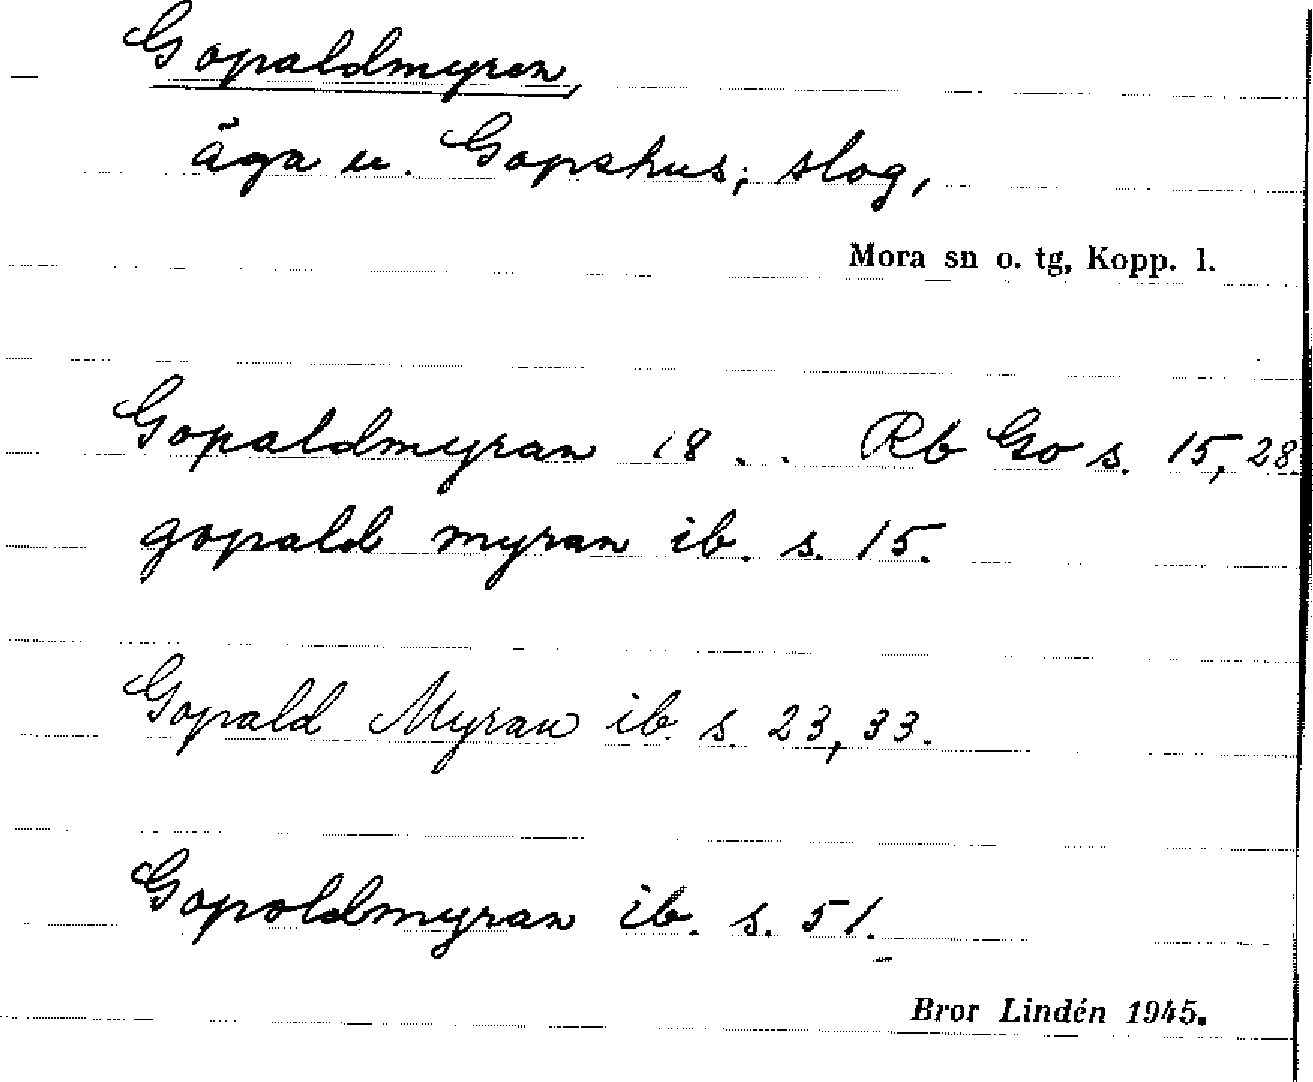 Gopaldmyren,
äga u. Gopshus; slog,
Mora sn o. tg, Kopp. l.
Gopaldmyran 18 . . Rb Go s. 15, 28.
gopald myran ib. s. 15.
Gopald Myran ib. s. 23, 33.
Gopoldmyran ib. s. 51.
Bror Lindén 1945.